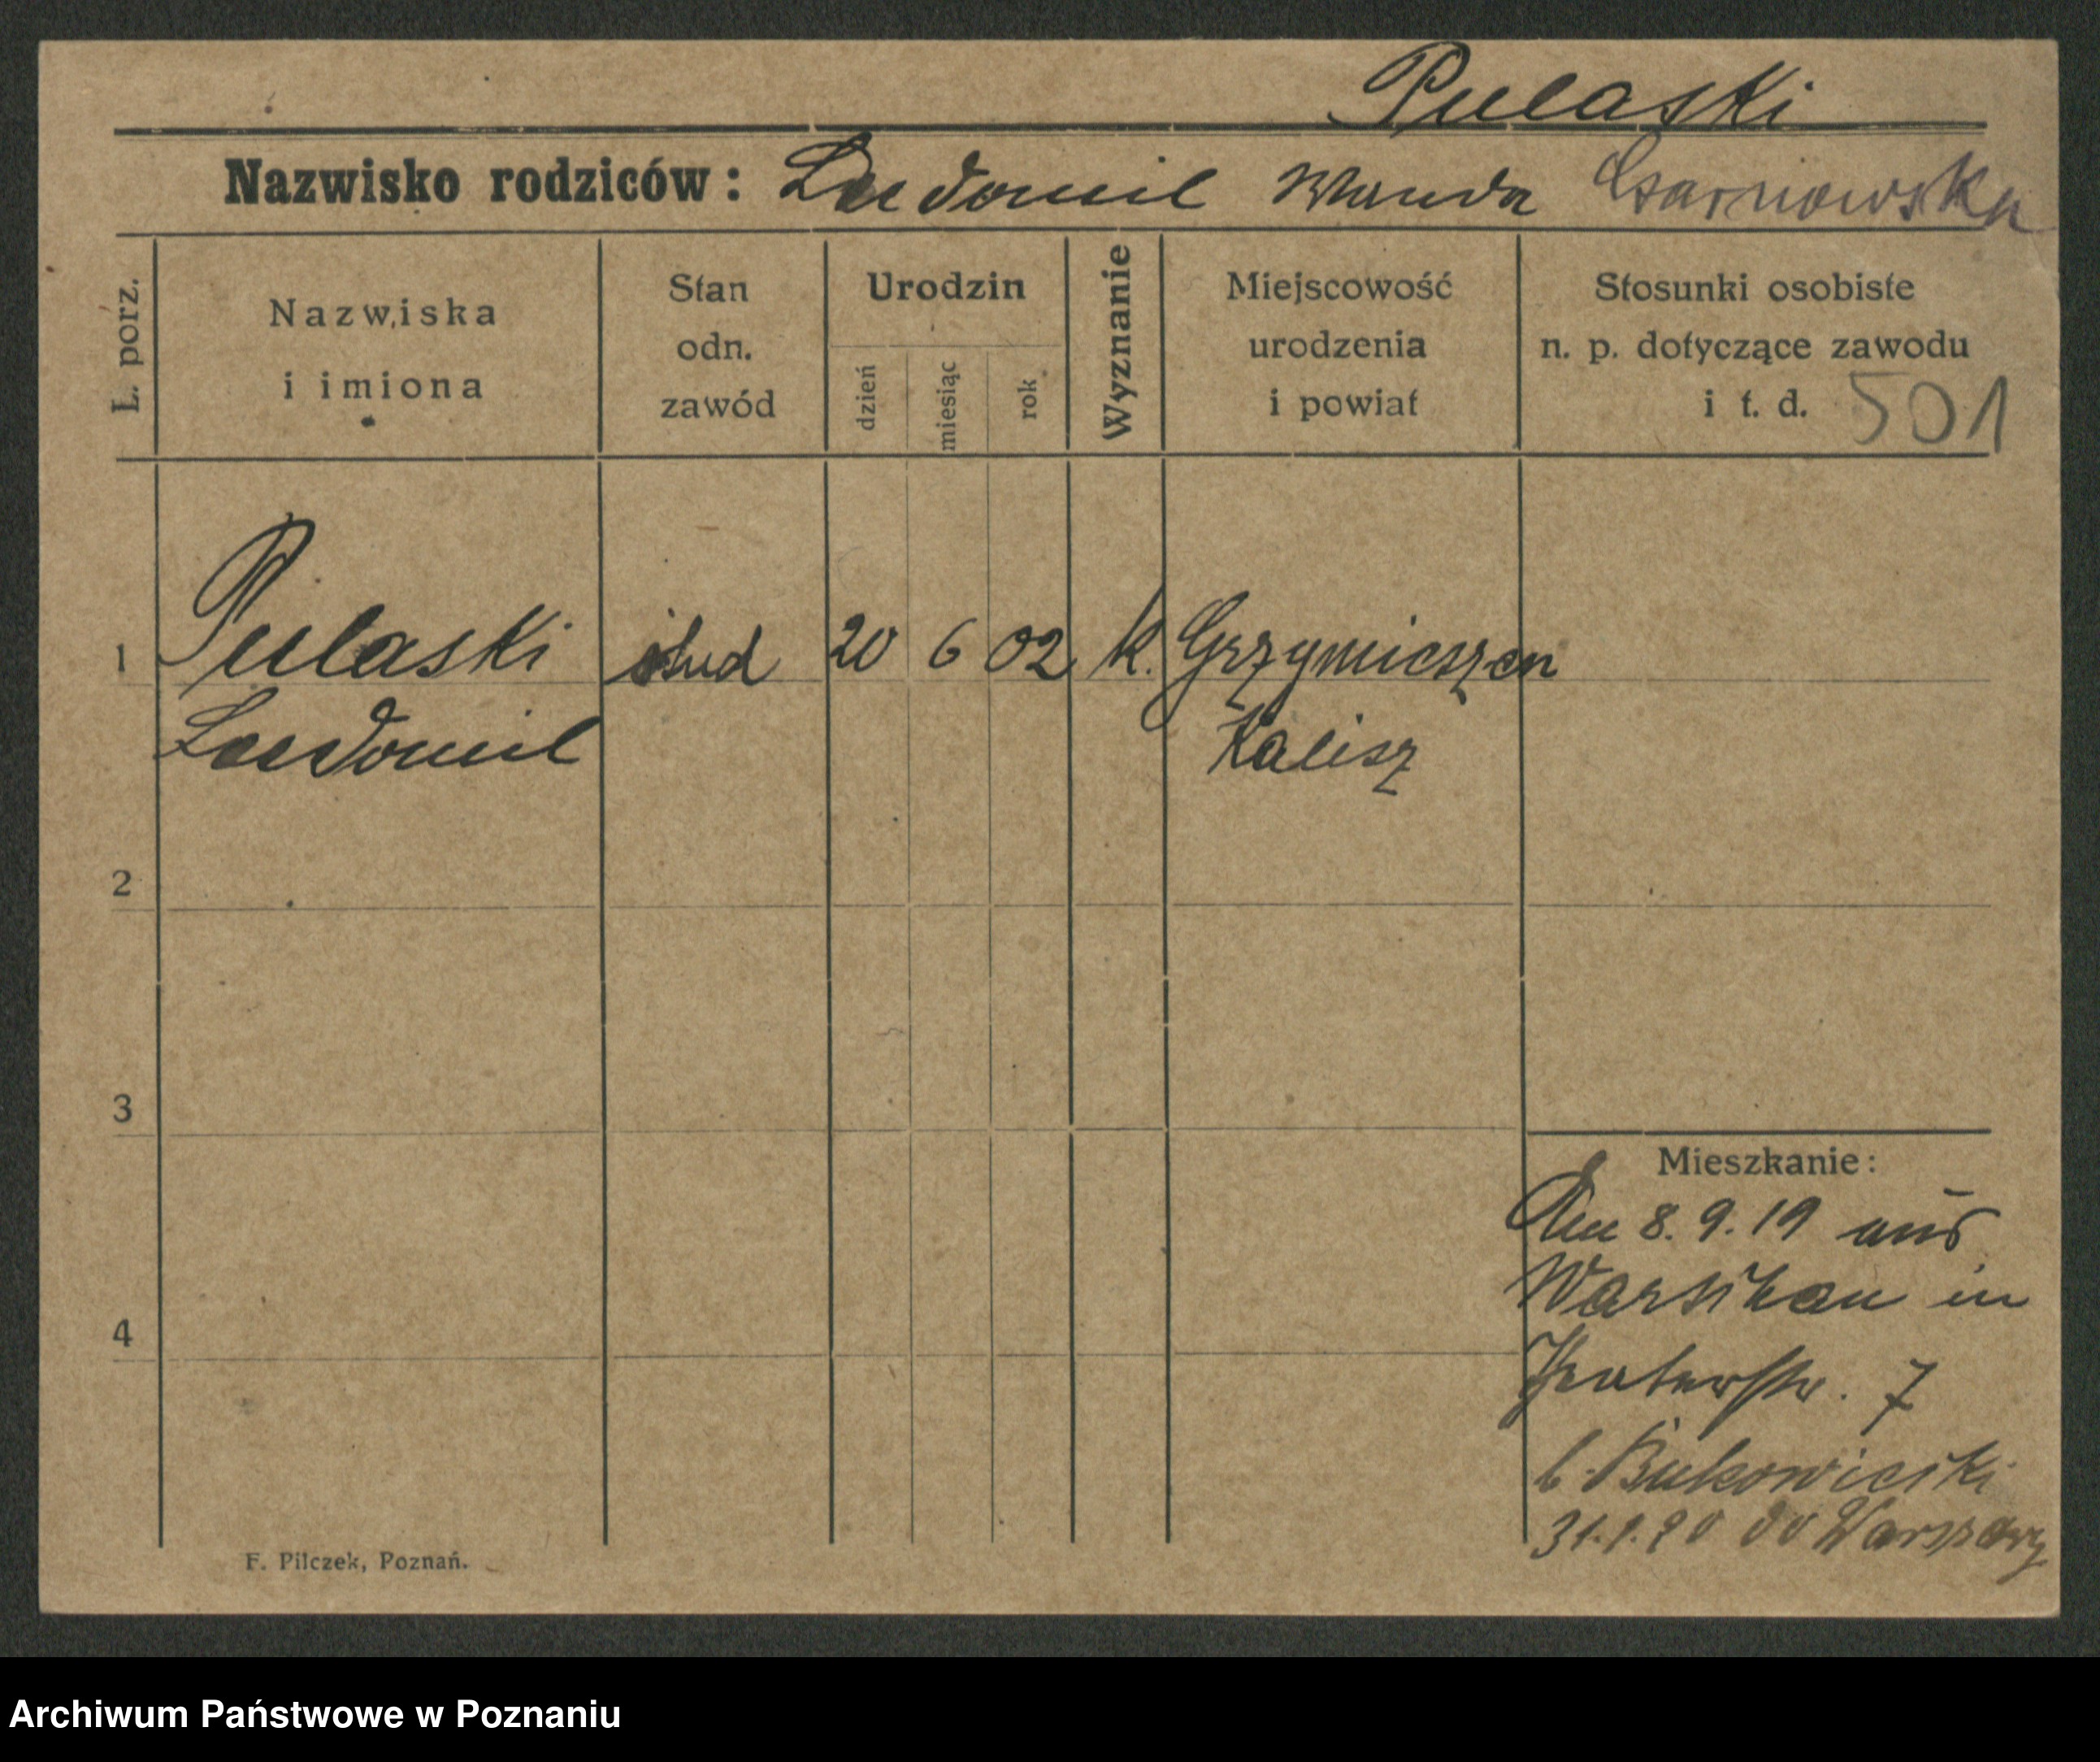 Pulaski
Nazwisko rodziców: Ludomil Wanda Czarnowska
L. porz.
Nazwiska
i imiona
Stan
odn.
zawód
Urodzin
dzień
miesiąc
rok
Wyznanie
Miejscowość
urodzenia
i powiat
Stosunki osobiste
n. p. dotyczące zawodu
i t. d. 501
1 Pulaski stud 20 6 02 k.
Ludomil Kalisz
2
3
4
Mieszkanie:
Den 8. 9. 19 aus
Warschau in
7
b. Bukowiecki
do Warszawy
F. Pilczek, Poznań.
Archiwum Państwowe w Poznaniu